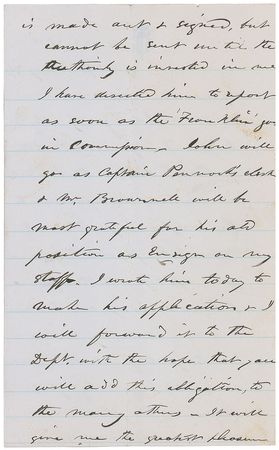 is made out & signed, but
cannot be sent until the
authority is invested in me
I have directed him to report
as soon as the "Franklin" goes
in Commission. John will
go as Captain Pennock's clerk
& Mr. Brownell will be
most grateful for his old
position as Ensign on my
staff. I wrote him today to
make his application & I
will forward it to the
Dept. with the hope that you
will add this obligation, to
the many others - It will
give me the greatest pleasure